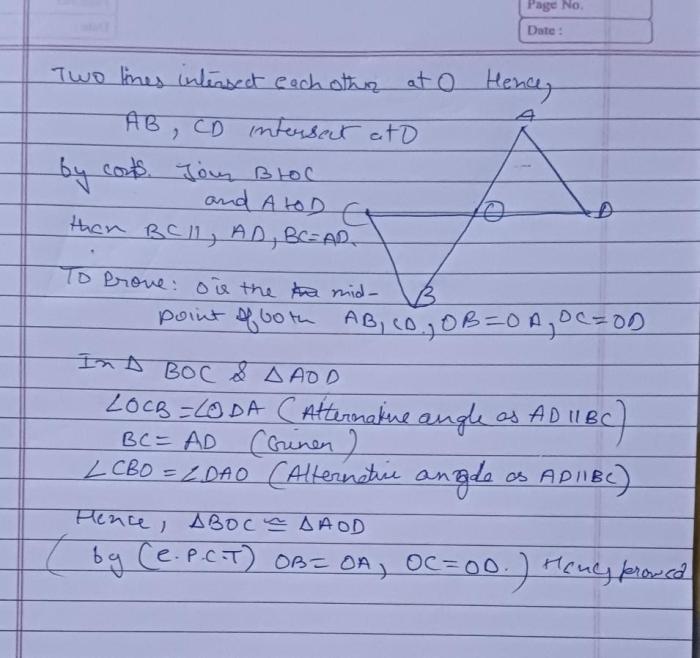 Page No.
Date :
Two lines intersect each other at O Hence,
AB, CD intersect at O
by const. Join B to C
and A to D
then BC ||, AD, BC=AD.
A
C
O
D
B
To Prove: O is the mid-
point of both AB, CD., OB=OA, OC=OD
In Δ BOC & ΔAOD
∠OCB=∠ODA (Alternative angle as AD||BC)
BC= AD (Given)
∠CBO=∠DAO (Alternative angle as AD||BC)
Hence, ΔBOC ≅ ΔAOD
(by (C.P.C.T) OB= OA, OC=OD.) Hence proved